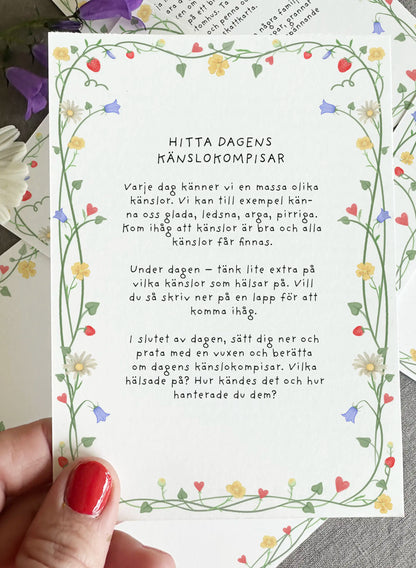 HITTA DAGENS
KÄNSLOKOMPISAR
Varje dag känner vi en massa olika
känslor. Vi kan till exempel kän-
na oss glada, ledsna, arga, pirriga.
Kom ihåg att känslor är bra och alla
känslor får finnas.
Under dagen – tänk lite extra på
vilka känslor som hälsar på. Vill
du så skriv ner på en lapp för att
komma ihåg.
I slutet av dagen, sätt dig ner och
prata med en vuxen och berätta
om dagens känslokompisar. Vilka
hälsade på? Hur kändes det och hur
hanterade du dem?